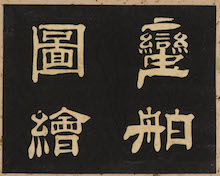 蠻舶
圖繪